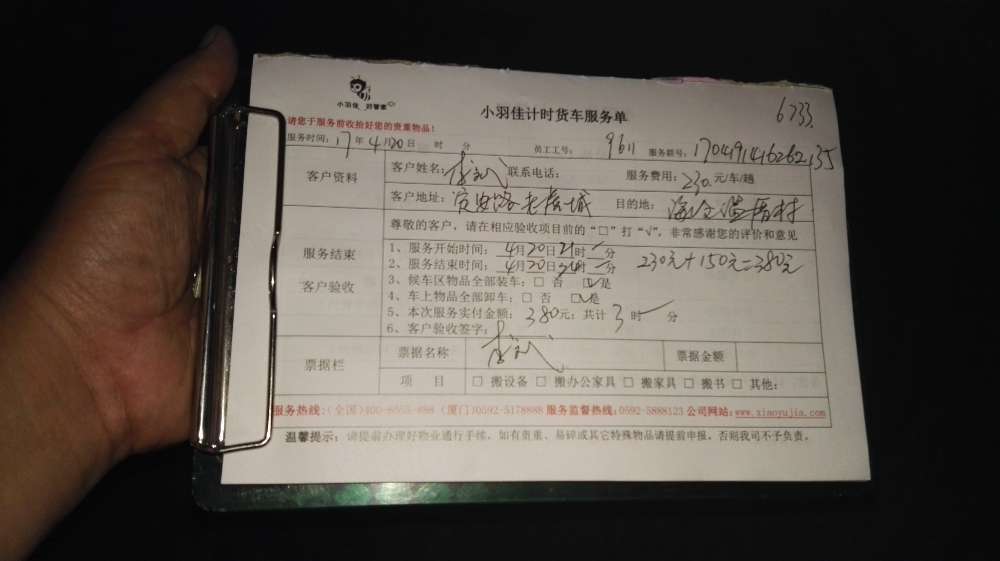 小羽佳 好管家
小羽佳计时货车服务单
6733
请您于服务前收拾好您的贵重物品!
服务时间: 17年4月20日 时 分 员工工号: 9611 服务联号: 170419141626213
客户资料
客户姓名: 联系电话: 服务费用: 230元/车/趟
客户地址: 目的地:
服务结束
客户验收
尊敬的客户,请在相应验收项目前的“□”打“√”,非常感谢您的评价和意见
1、服务开始时间: 4月20日21时 分
2、服务结束时间: 4月20日24时 分
230元+150元=380元
3、候车区物品全部装车:□ 否 □是
4、车上物品全部卸车:□ 否 □是
5、本次服务实付金额: 380元;共计 3时 分
6、客户验收签字:
票据栏
票据名称 票据金额
项 目 □ 搬设备 □ 搬办公家具 □ 搬家具 □ 搬书 □ 其他:
服务热线:(全国) (厦门)0592-5178888 服务监督热线:0592-5888123 公司网站:www.xiaoyujia.com
温馨提示: 请提前办理好物业通行手续,如有贵重、易碎或其它特殊物品请提前申报,否则我司不予负责。